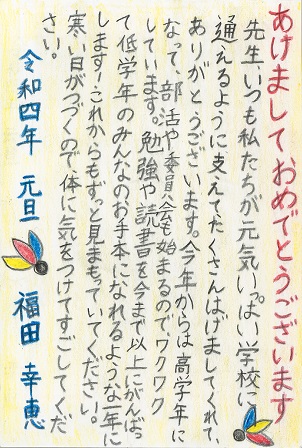 あけましておめでとうございます
先生いつも私たちが元気いっぱい学校に
通えるように支えてたくさんはげましてくれて、
ありがとうございます。今年からは高学年に
なって、部活や委員会も始まるのでワクワク
しています。勉強や読書を今まで以上にがんばっ
て低学年のみんなのお手本になれるような一年に
します！これからもずっと見まもっていてください。
寒い日がつづくので、体に気をつけてすごしてくだ
さい。
令和四年 元旦 福田 幸恵